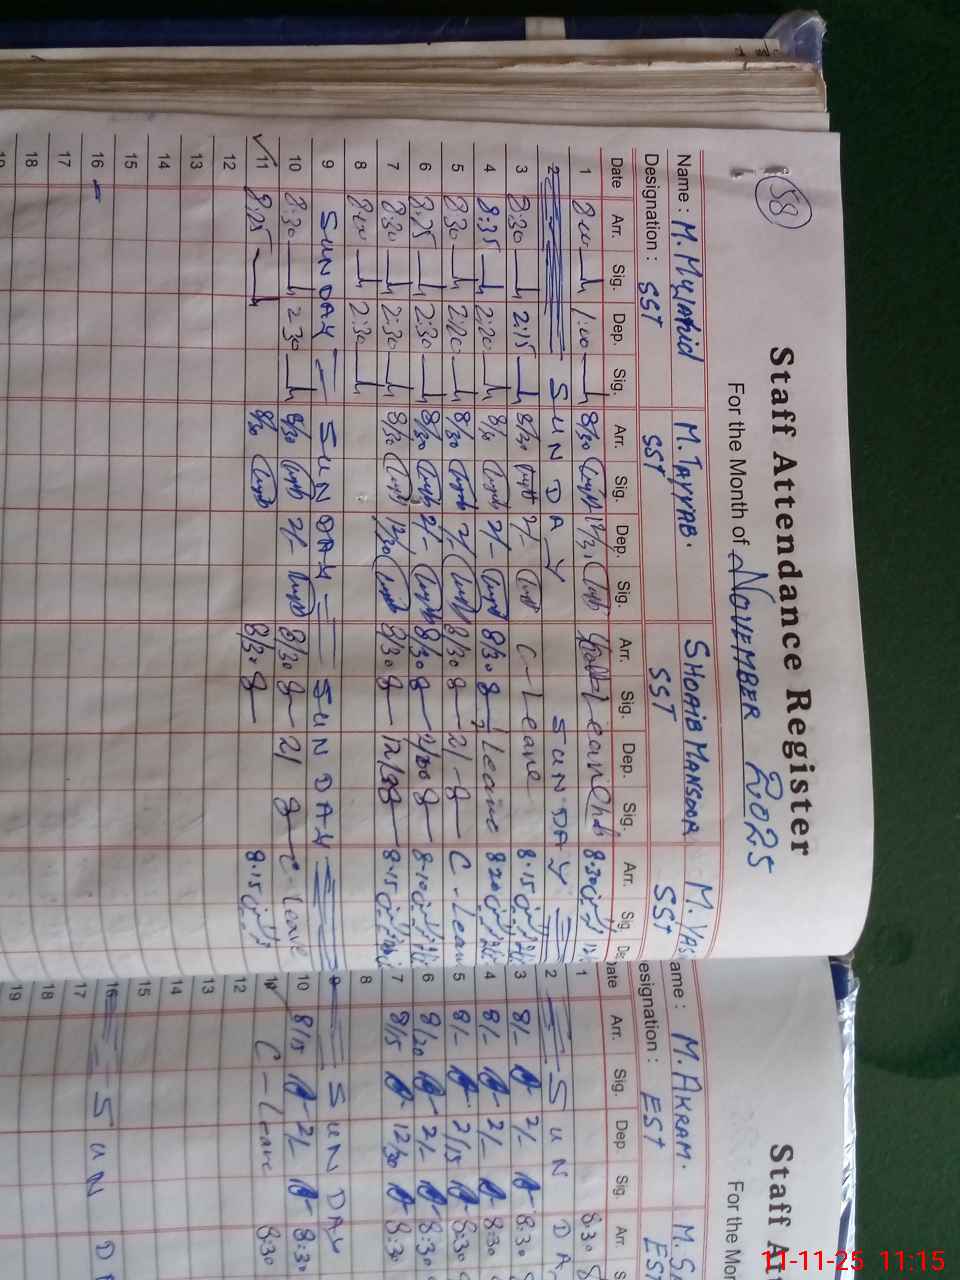 58
Staff Attendance Register
For the Month of NOVEMBER 2025
Name : M. Mujahid M. TAYYAB. SHOAIB MANSOOR M. YAS
Designation : SST SST SST SST
Date Arr. Sig. Dep. Sig. Arr. Sig. Dep. Sig. Arr. Sig. Dep. Sig. Arr. Sig. De
1 8:00 1:00 8/30 8:30
2 SUNDAY SUNDAY
3 8:30 2:15 8/30 2/- C-Leave 8:15
4 8:35 2:20 8/- 2/- 8/30 Leave 8:20
5 8:30 2:20 8/30 2/ 8/30 2/- C-Leave
6 8:25 2:30 8/30 2/- 8/30 2/00 8:10
7 8:30 2:30 8/30 12/30 8/30 12/30 8:15
8 8:00 2:30
9 SUNDAY SUNDAY SUNDAY
10 8:30 2:30 8/30 2/- 8/30 2/ C-leave
11 8:25 8/30 8/30 8:15
12
13
14
15
16
17
18
19
Staff At
For the Mon
ame : M. AKRAM. M. S
esignation : EST EST
Date Arr. Sig. Dep. Sig. Arr. S
1 8:30
2 SUNDA
3 8/- 2/- 8:30
4 8/- 2/- 8:30
5 8/- 2/15 8:30
6 8/20 2/- 8:30
7 8/15 12/30 8:30
8
9 SUNDAY
10 8/15 2/- 8:30
11 C-Leave 8:30
12
13
14
15
16 SUN D
17
18
19
11-11-25 11:15